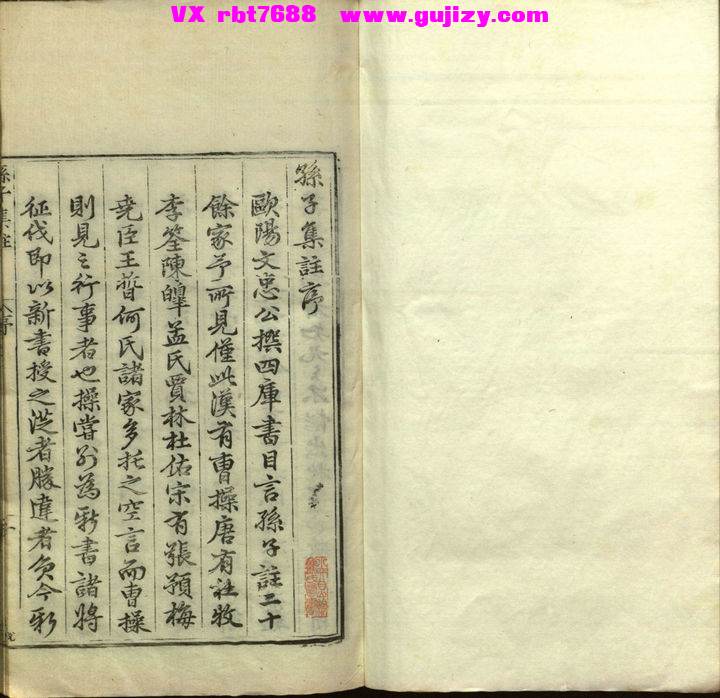 VX rbt7688 www.gujizy.com
孫子集註序
歐陽文忠公撰四庫書目言孫子註二十
餘家予所見僅此漢有曹操唐有杜牧
李筌陳皥孟氏賈林杜佑宋有張預梅
堯臣王晳何氏諸家多托之空言而曹操
則見之行事者也操嘗別為新書諸將
征伐即以新書授之從者勝違者負今新
孫子集註
序